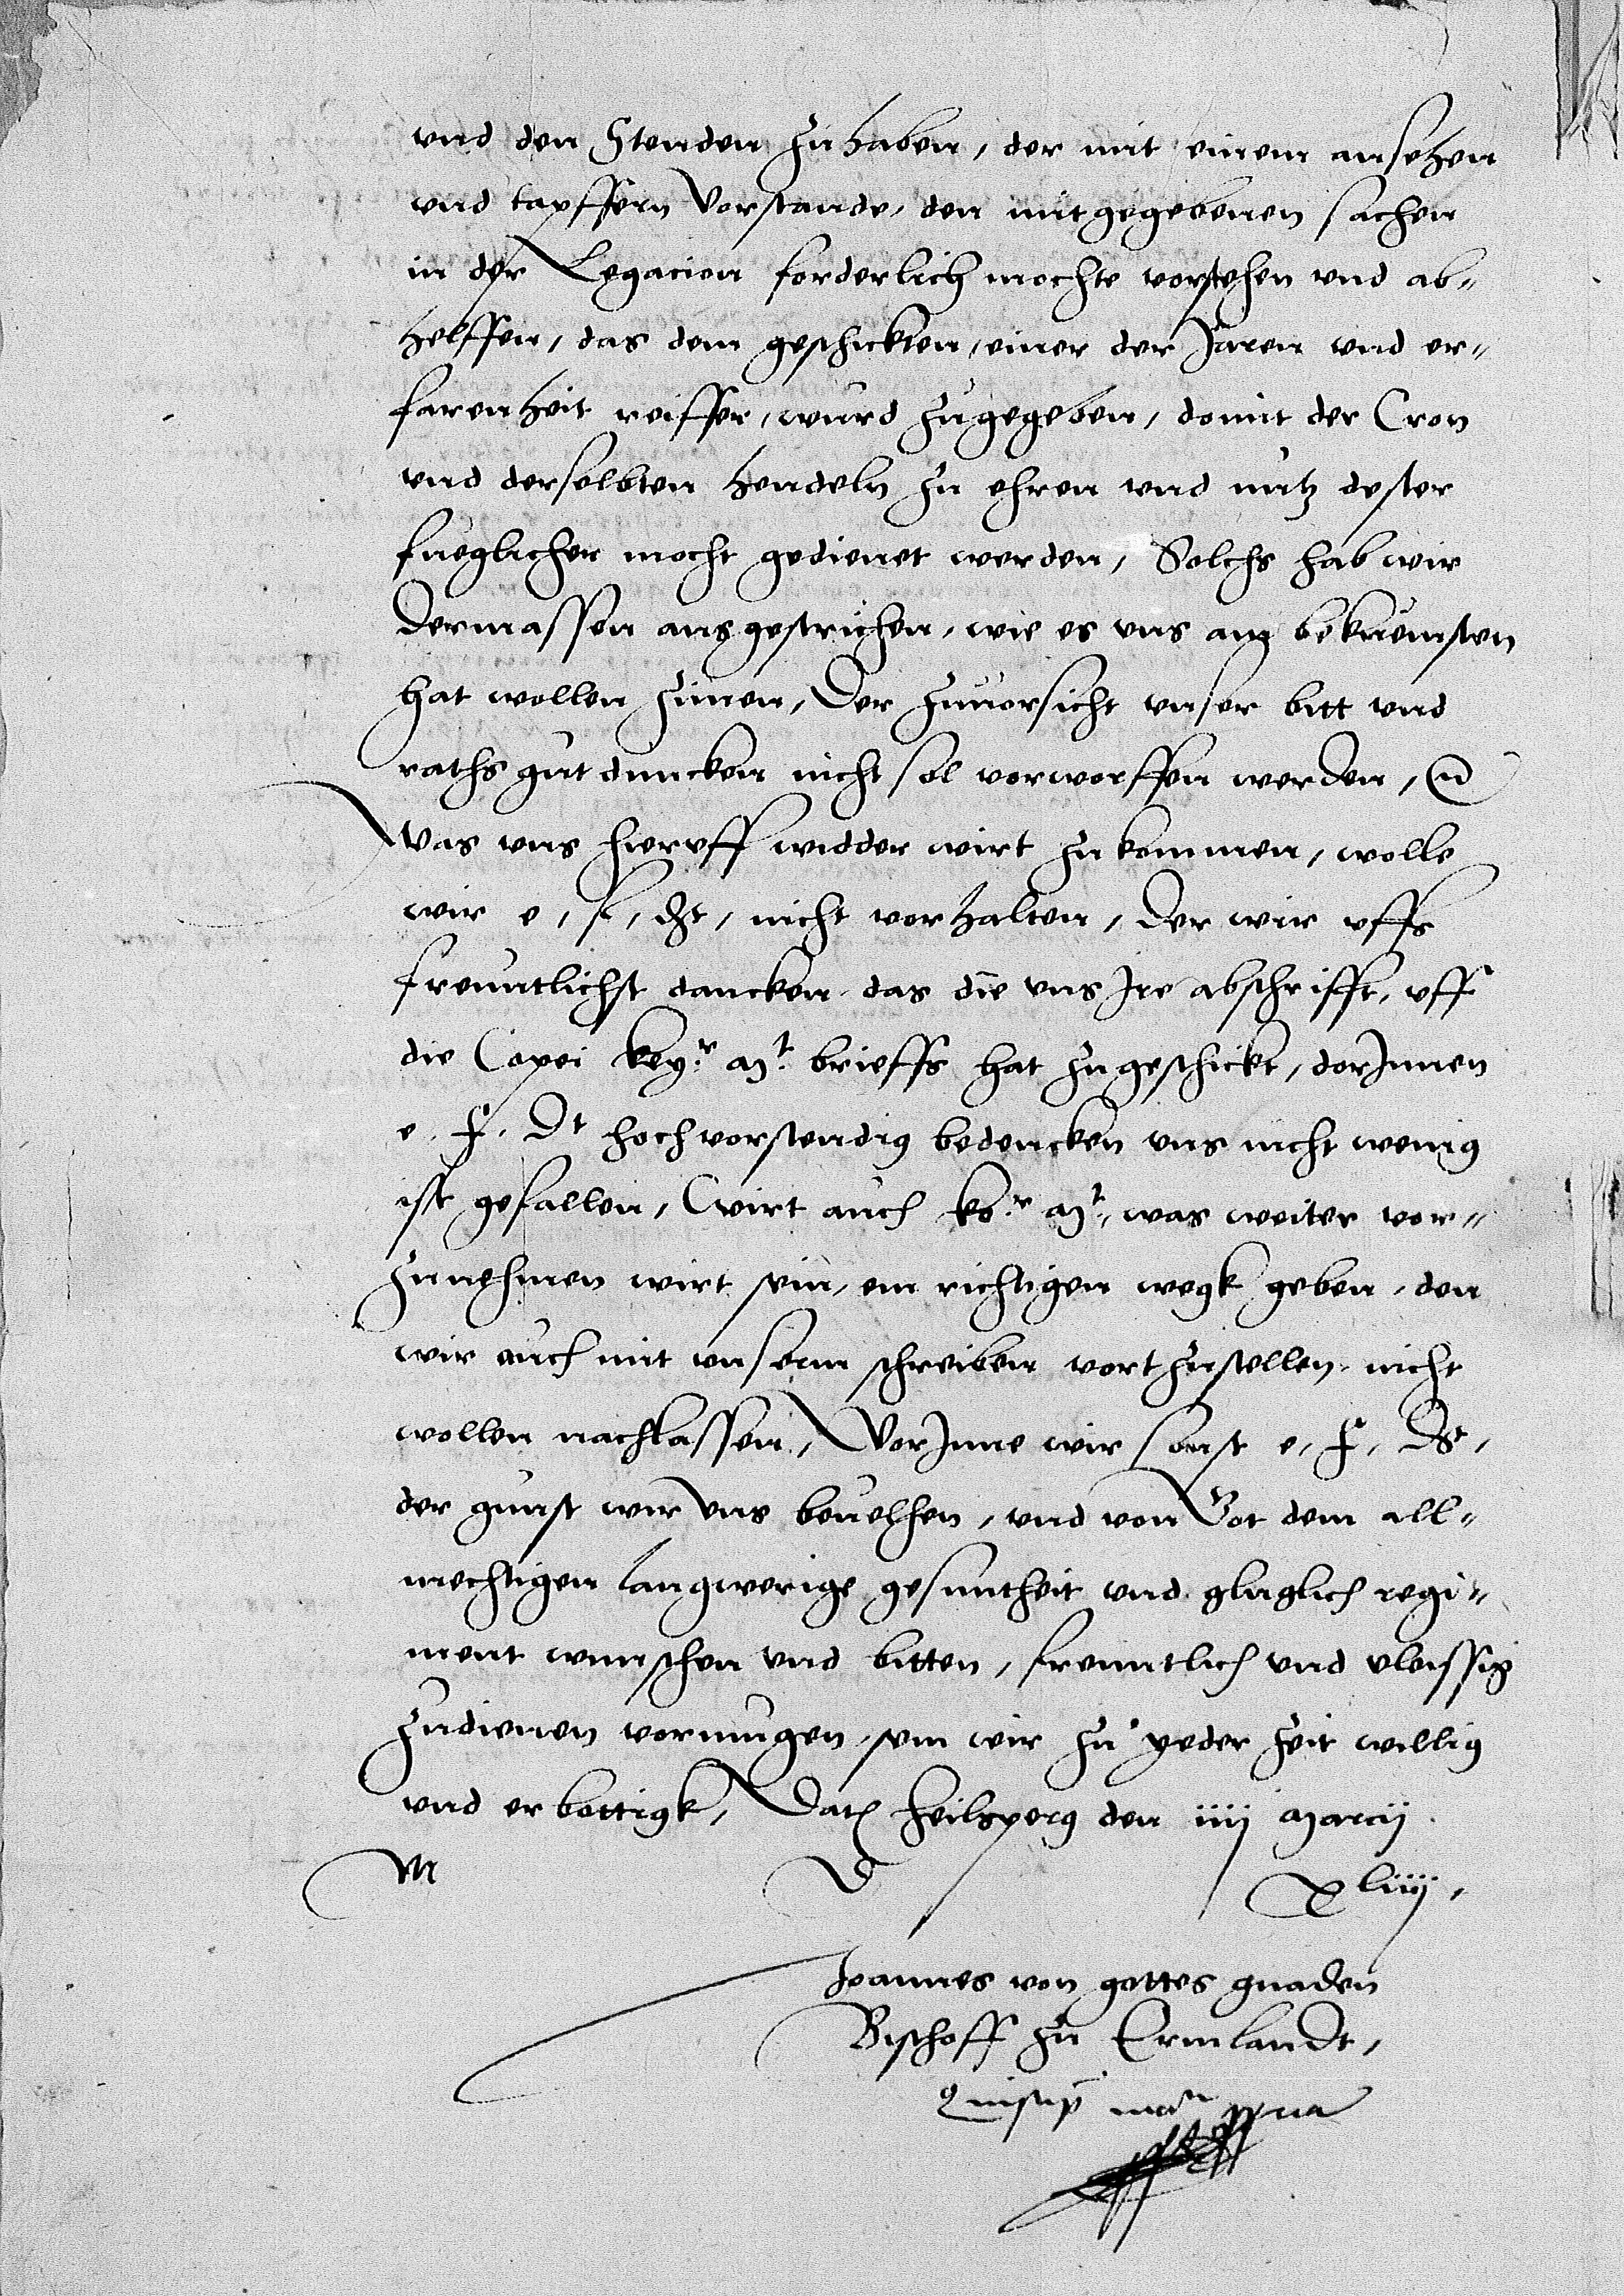 vnd den Stenden zuhaben, der mit einem ansehen
vnd tapffern Vorstande, den mitgegebenen sachen
in der Legacien forderlich mochte vorstehen vnd ab-
helffen, das dem geschickten, einer der Jaren vnd er-
farenheit reiffer, wurd zugegeben, domit der Cron
vnd derselbten hendeln zu ehren vnd nutz dester
fueglicher mocht gedienet werden, Solchs hab wir
dermassen ausgestrichen, wie es vns am bekuemsten
hat wollen zimen, Der zuuorsicht vnser bitt vnd
raths gutduncken nicht sol vorworffen werden,
Was vns hieruff widder wirt zukommen, wolle
wir e, f, dt, nicht vorhalten, Der wir vffs
freuntlichst dancken das die vns Ire abschrifft, vff
die Copei key.r mt. brieffs hat zugeschickt, dorInnen
e. f. Dt hochvorstendig bedencken vns nicht wenig
ist gefallen, Wirt auch ko.r mt., was weiter vor-
zunehmen wirt sein, ein richtigen wegk geben, den
wir auch mit vnserm schreiben vortzustellen, nicht
wollen nachlassen, WorInne wir sonst e, f, Dt,
der gunst wir vns beuelhen, vnd von Got dem all-
mechtigen langwerige gesuntheit vnd gluglich regi-
ment wunschen vnd bitten, freuntlich vnd vleissig
zudienen vormugen, sein wir zu yeder zeit willig
vnd erbottigk, Datum Heilsperg den iiij Marcij
M D Xliiij,
Joannes von gottes gnaden
Bischoff zu Ermlandt,
manu ppria